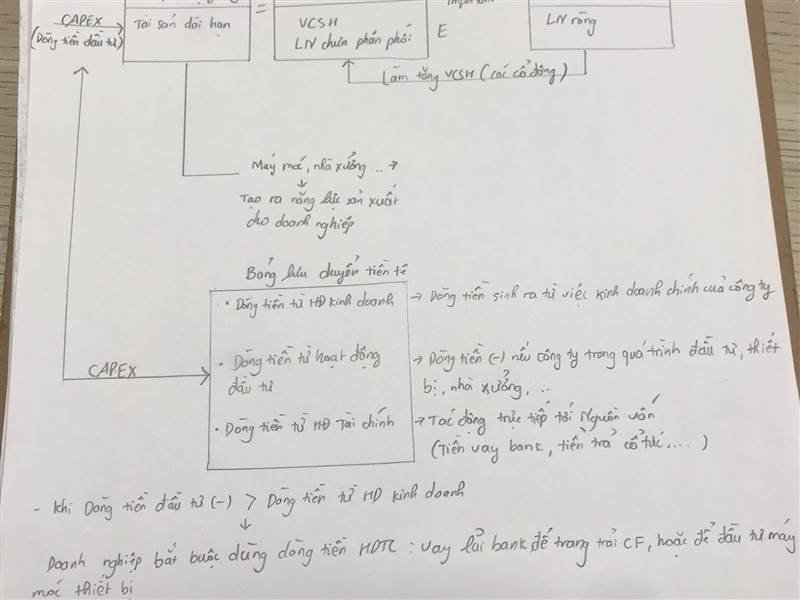 CAPEX
(Dòng tiền đầu tư)
Tài sản dài hạn
=
VCSH
LN chưa phân phối
E
LN ròng
Làm tăng VCSH (các cổ đông)
Máy móc, nhà xưởng ... →
↓
Tạo ra năng lực sản xuất
cho doanh nghiệp
Bảng lưu chuyển tiền tệ
• Dòng tiền từ HĐ kinh doanh → Dòng tiền sinh ra từ việc kinh doanh chính của công ty
CAPEX
• Dòng tiền từ hoạt động → Dòng tiền (-) nếu công ty trong quá trình đầu tư, thiết
đầu tư bị, nhà xưởng, ...
• Dòng tiền từ HĐ Tài chính → Tác động trực tiếp tới Nguồn vốn
(Tiền vay bank, tiền trả cổ tức, ... )
- Khi Dòng tiền đầu tư (-) > Dòng tiền từ HD kinh doanh
↓
Doanh nghiệp bắt buộc dùng dòng tiền HDTC : vay lãi bank để trang trải CF, hoặc để đầu tư máy
móc thiết bị